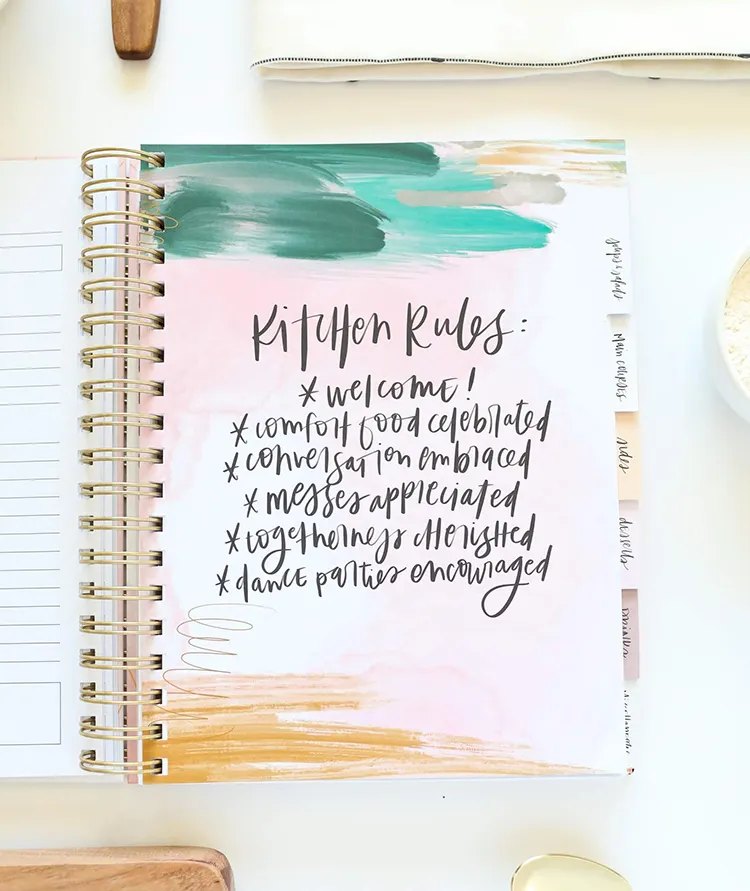 Kitchen Rules:
* welcome!
* comfort food celebrated
* conversation embraced
* messes appreciated
* togetherness cherished
* dance parties encouraged
soups & salads
main courses
sides
desserts
drinks